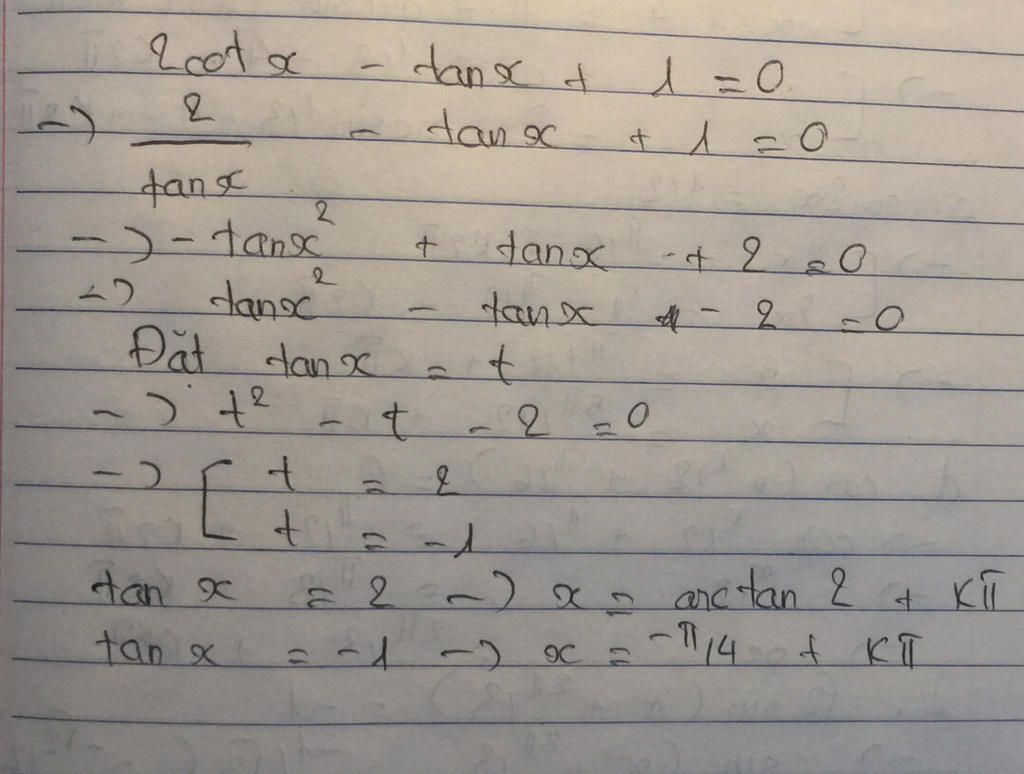 2cotx - tanx + 1 = 0
-> 2/tanx - tanx + 1 = 0
-> - tanx² + tanx + 2 = 0
-> tanx² - tanx - 2 = 0
Đặt tanx = t
-> t² - t - 2 = 0
-> [ t = 2
t = -1
tan x = 2 -> x = arctan 2 + kπ
tan x = -1 -> x = -π/4 + kπ